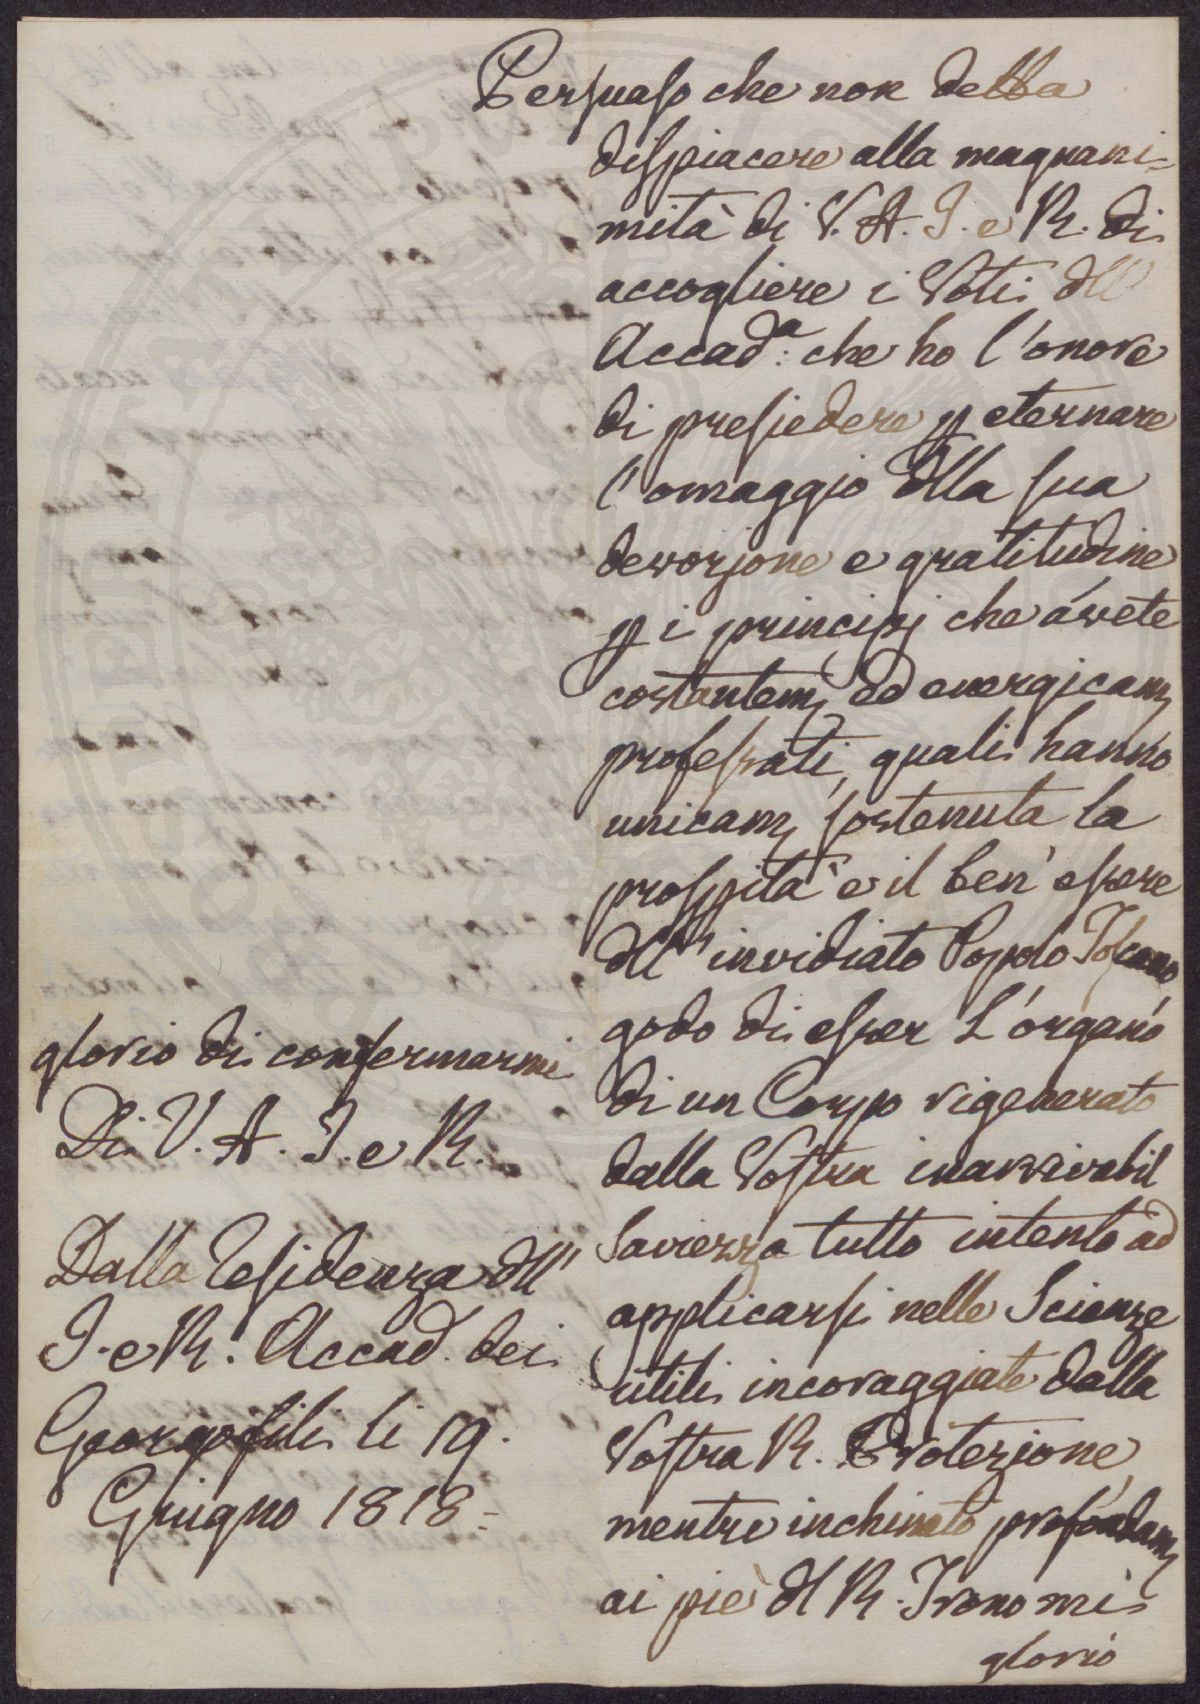 Persuaso che non debba
dispiacere alla magnani=
mità di V. A. I. e R. di
accogliere i Voti dll'
Accad.a: che ho l'onore
di presiedere p eternare
l'omaggio dlla sua
devozione e gratitudine
p i principj che avete
costantem. ed energicam.
professati, quali hanno
unicam. sostenuta la
prosprità e il ben'essere
dll'invidiato Popolo Toscano
godo di esser L'organo
di un Corpo rigenerato
dalla Vostra inarrivabil
Saviezza tutto intento ad
applicarsi nelle Scienze
utili incoraggiate dalla
Vostra R. Protezione
mentre inchinato profondam.
ai piè dl R. Trono mi
glorio
glorio di confermarmi
Di V. A. I. e R.
Dalla Residenza dll'
I. e R. Accad. dei
Georgofili li 19.
Giugno 1818=